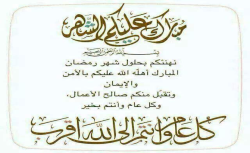 مبارك عليكم الشهر
نهنئكم بحلول شهر رمضان
المبارك أهله الله عليكم بالأمن
والإيمان
وتقبل منكم صالح الأعمال،
وكل عام وأنتم بخير
كل عام وأنتم إلى الله أقرب